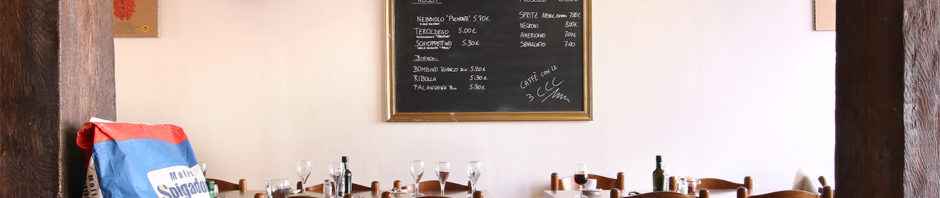 NEBBIOLO "PIEMONTE" 5.70€
TEROLDEGO 5.00€
SCHIOPPETTINO 5.30€
BIANCHI
BOMBINO BIANCO BIO 5.20€
RIBOLLA 5.30€
FALANGHINA BIO 5.80€
SPRITZ 7.00€
NEGRONI 8.00€
AMERICANO 7.00€
SBAGLIATO 7.00
CAFFÈ CON LE
3 CCC
Molino
Spigadoro